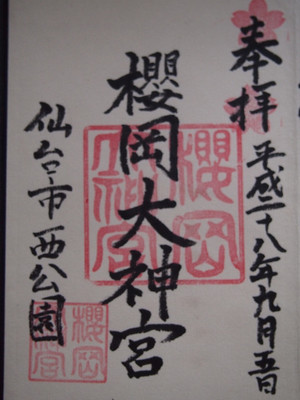 奉拝
平成二十八年九月五日
櫻岡大神宮
仙台市西公園
櫻岡大神宮
櫻岡大神宮